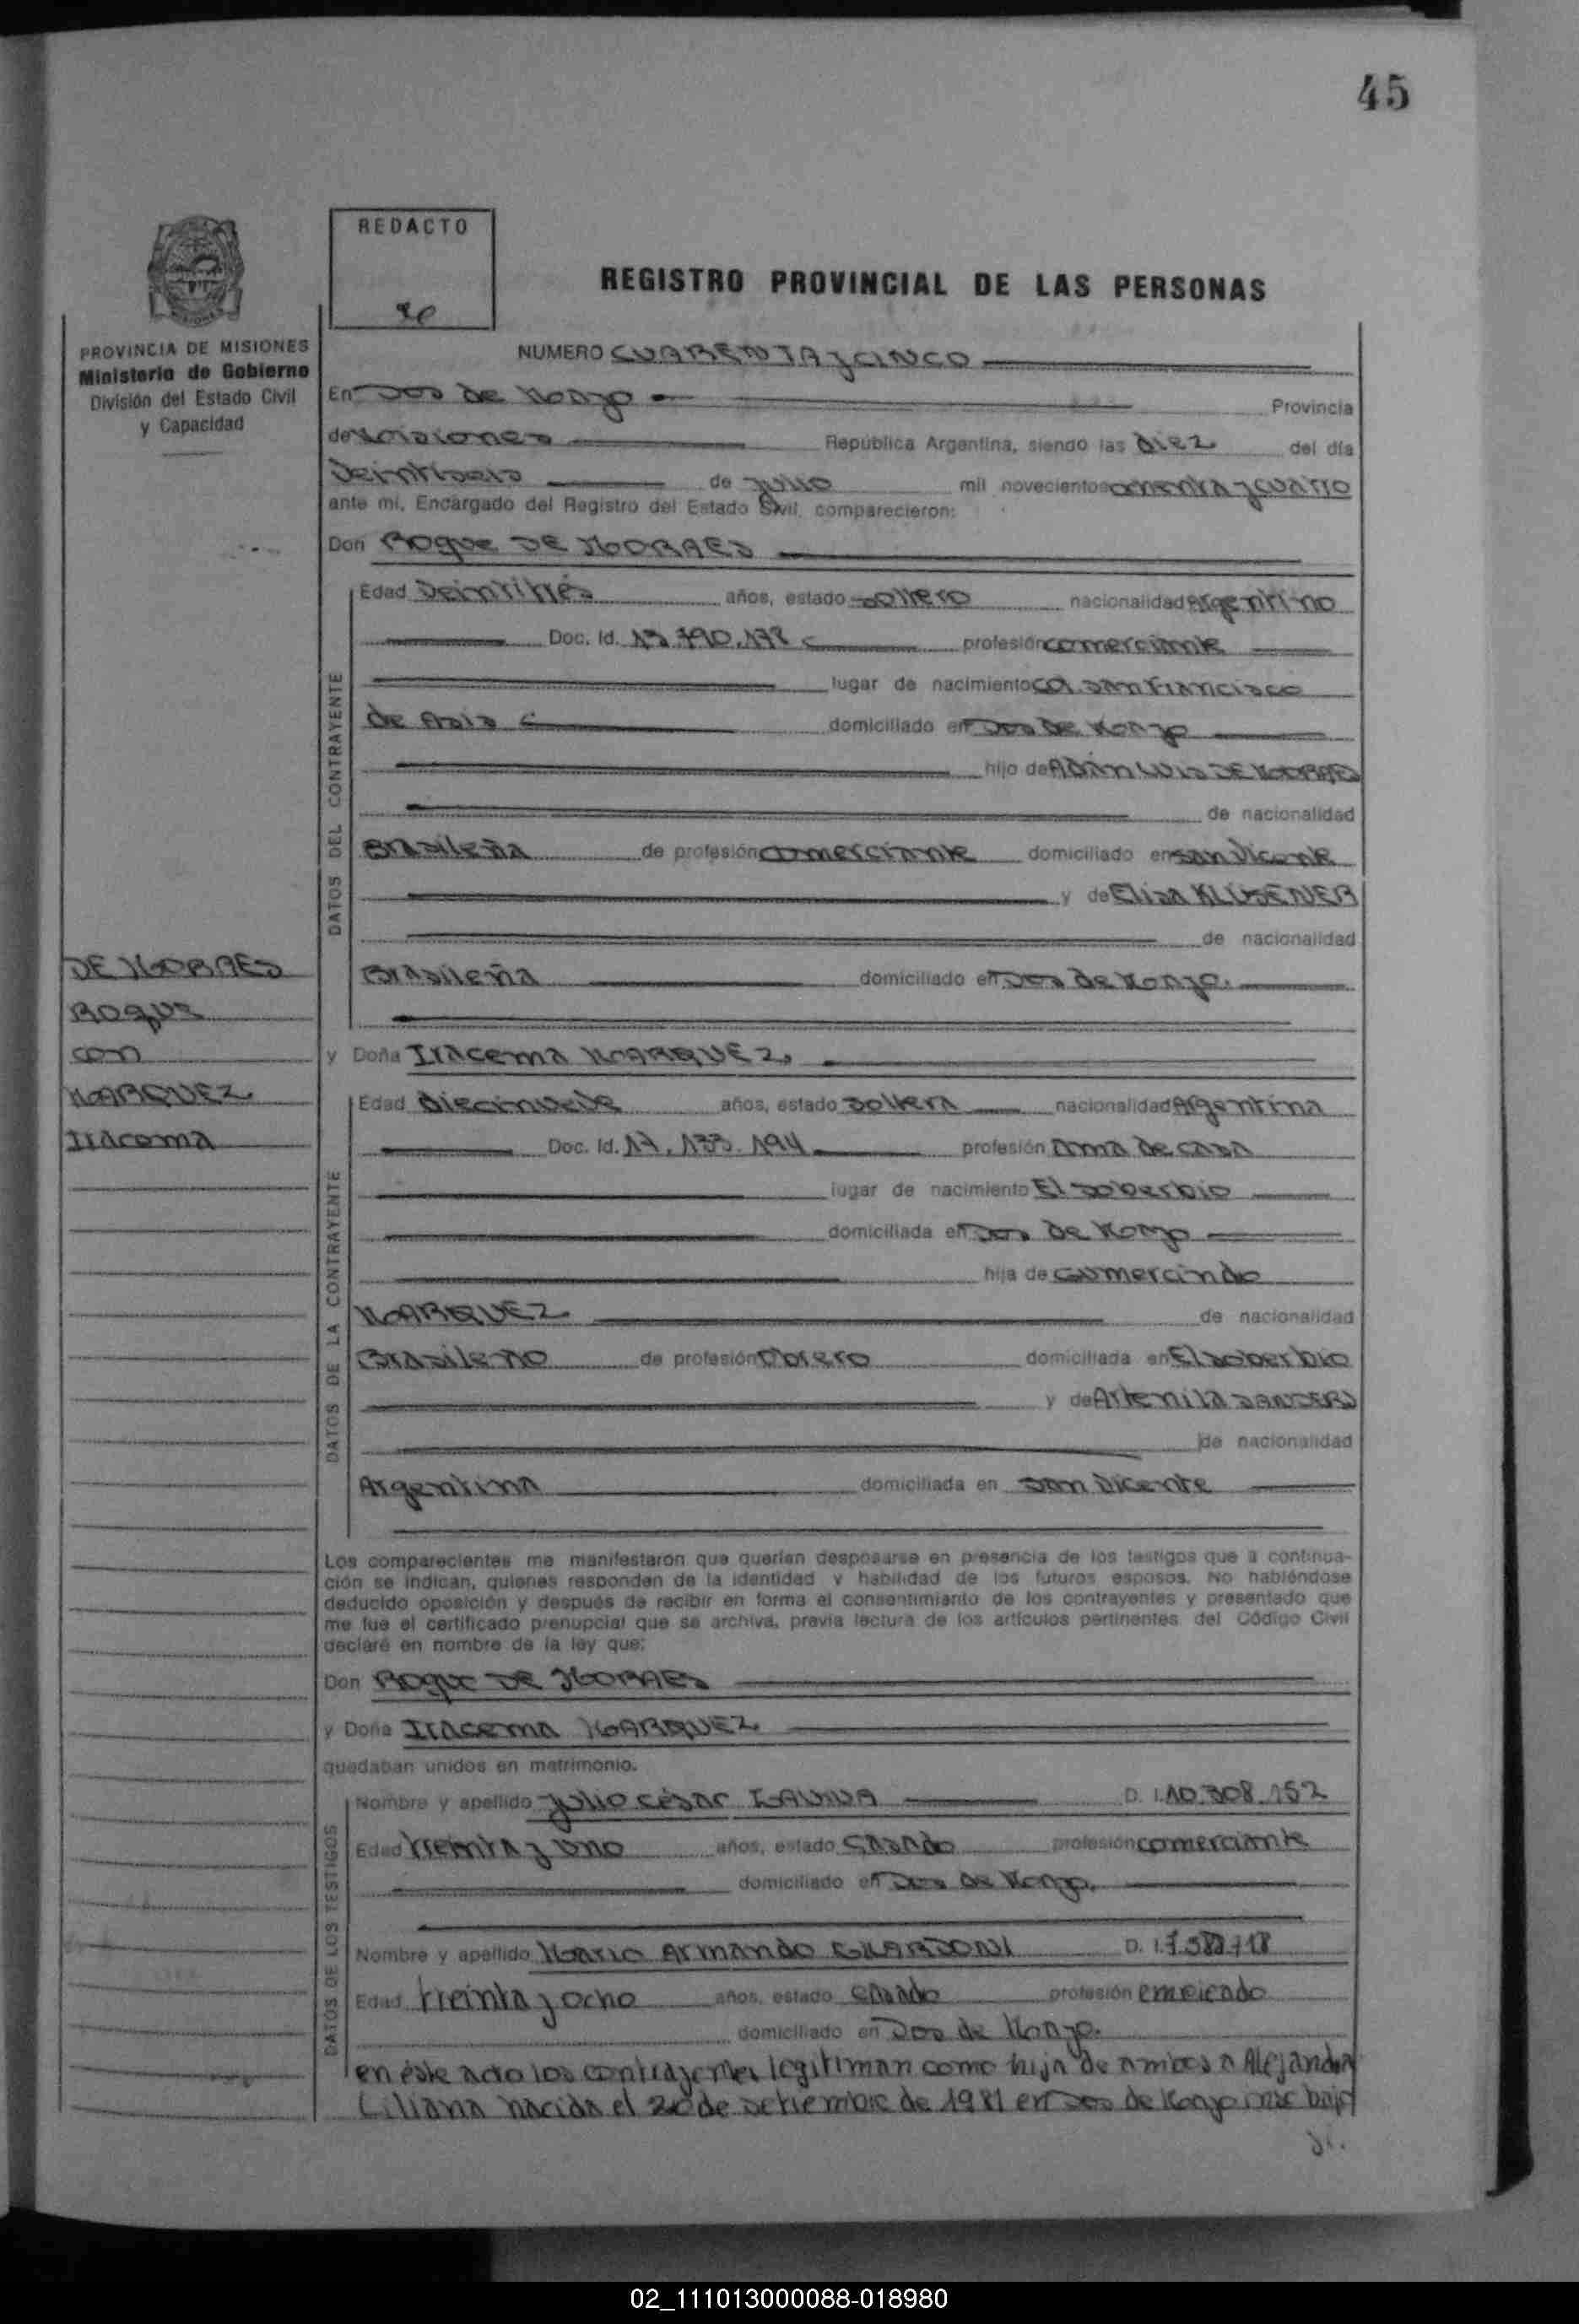 45
REDACTO
REGISTRO PROVINCIAL DE LAS PERSONAS
PROVINCIA DE MISIONES
Ministerio de Gobierno
División del Estado Civil
y Capacidad
NUMERO CUARENTA y CINCO
En Dos de Mayo Provincia
de Misiones República Argentina, siendo las diez del día
Veintiseis de julio mil novecientos ochenta y cuatro
ante mi, Encargado del Registro del Estado Civil, comparecieron:
Don Roque DE MORAES
DATOS DEL CONTRAYENTE
Edad Veintitrés años, estado soltero nacionalidad Argentino
Doc. Id. profesión comerciante
lugar de nacimiento Col. San Francisco
de Asis domiciliado en Dos de Mayo
hijo de Adán Luis DE MORAES
de nacionalidad
Brasileña de profesión comerciante domiciliado en San Vicente
y de Elisa KLUSENER
de nacionalidad
Brasileña domiciliado en Dos de Mayo.
DE MORAES
Roque
con
MARQUEZ
Iracema
y Doña Iracema MARQUEZ.
DATOS DE LA CONTRAYENTE
Edad Diecinueve años, estado soltera nacionalidad Argentina
Doc. Id. 17.133.194 profesión ama de casa
lugar de nacimiento El Soberbio
domiciliada en Dos de Mayo
hija de Gumercindo
MARQUEZ de nacionalidad
Brasileño de profesión Obrero domiciliada en El Soberbio
y de Artenila SANDERS
de nacionalidad
Argentina domiciliada en San Vicente
Los comparecientes me manifestaron que querían desposarse en presencia de los testigos que a continua-
ción se indican, quienes responden de la identidad y habilidad de los futuros esposos. No habiéndose
deducido oposición y después de recibir en forma el consentimiento de los contrayentes y presentado que
me fue el certificado prenupcial que se archiva, previa lectura de los artículos pertinentes del Código Civil
declaré en nombre de la ley que:
Don Roque DE MORAES
y Doña Iracema MARQUEZ
quedaban unidos en matrimonio.
DATOS DE LOS TESTIGOS
Nombre y apellido Julio César D. I. 10.308.152
Edad treinta y uno años, estado casado profesión comerciante
domiciliado en Dos de Mayo.
Nombre y apellido Mario Armando GILARDONI D. I.
Edad treinta y ocho años, estado casado profesión empleado
domiciliado en Dos de Mayo.
en éste acto los contrayentes legitiman como hija de ambos a Alejandra
Liliana nacida el 20 de setiembre de 1981 en Dos de Mayo insc bajo
02_111013000088-018980